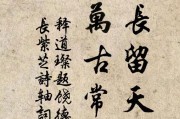 長留天
萬古常
釋道璨題饒德
長紫芝詩軸詞